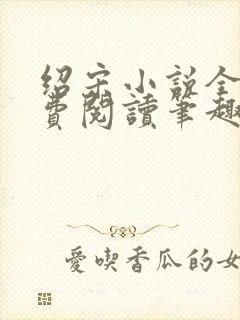 绍宋小说全
費閱讀筆趣
愛喫香瓜的女